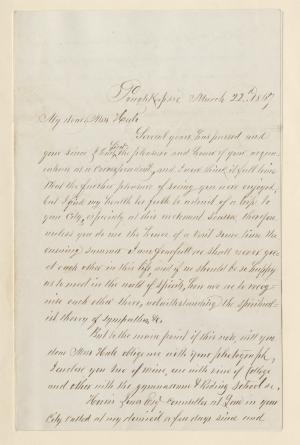 Poughkeepsie March 22nd 1867
My dear Mrs Hale
Several years has passed and
gone since I had first the pleasure and honor of your acquain
as a Correspondent, and I now think it full time
that the further pleasure of seeing you were enjoyed,
but I find my health too feeble to admit of a trip to
your City, especially at this inclement Season, therefore
unless you do me the honor of a visit some time the
ensuing summer I am fearful we shall never greet
at each other in this life, and if we should be so happy
as to meet in the world of Spirits, how are we to recog-
nise each other there, notwithstanding the Spiritual
ist theory of Sympathies, &c.
But to the main point of this note, will you
dear Mrs Hale oblige me with your photograph,
I enclose you two of mine, one with view of College
and other with the gymnasium & Riding School &c.
Horace Esqr Counsellor at Law in your
City called at my a few days since and